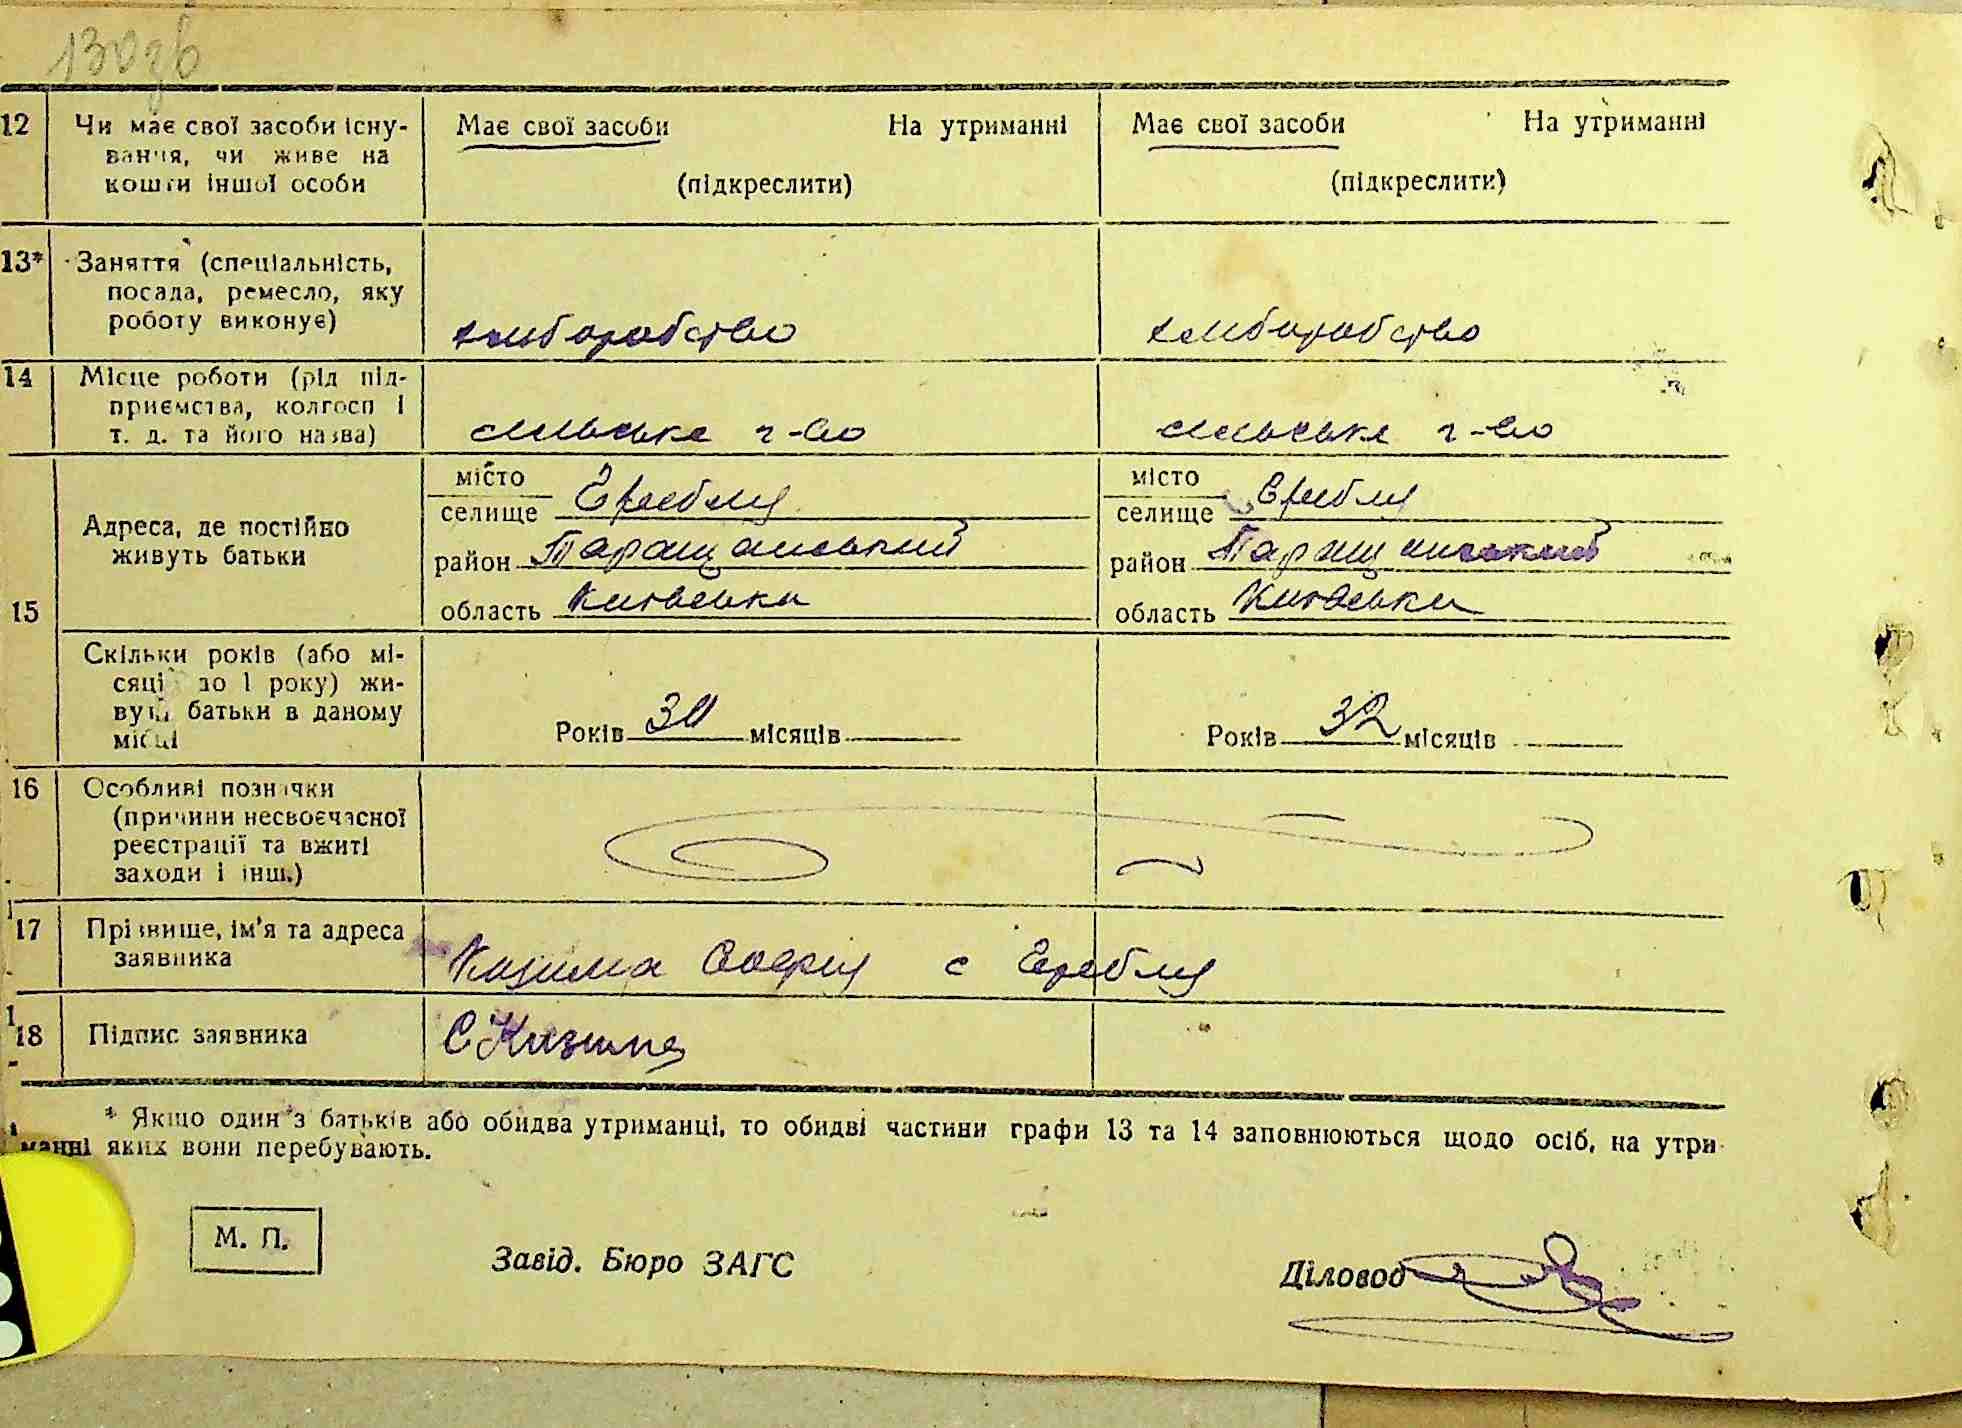 130зв
12 Чи має свої засоби існу-
вання, чи живе на
кошти іншої особи
Має свої засоби На утриманні
(підкреслити)
Має свої засоби На утриманні
(підкреслити)
13* Заняття (спеціальність,
посада, ремесло, яку
роботу виконує)
хліборобство
хліборобство
14 Місце роботи (рід під-
приємства, колгосп і
т. д. та його назва)
сільське г-во
сільське г-во
15
Адреса, де постійно
живуть батьки
місто
селище Гребля
район Таращанський
область Київська
місто
селище Гребля
район Таращанський
область Київська
Скільки років (або мі-
сяці до 1 року) жи-
вуть батьки в даному
місці
Років 30 місяців
Років 32 місяців
16 Особливі позначки
(причини несвоєчасної
реєстрації та вжиті
заходи і інш.)
17 Прізвище, ім'я та адреса
заявника
Козима Софія с Гребля
18 Підпис заявника
С Козима
* Якщо один з батьків або обидва утриманці, то обидві частини графи 13 та 14 заповнюються щодо осіб, на утри-
манні яких вони перебувають.
М. П.
Завід. Бюро ЗАГС
Діловод